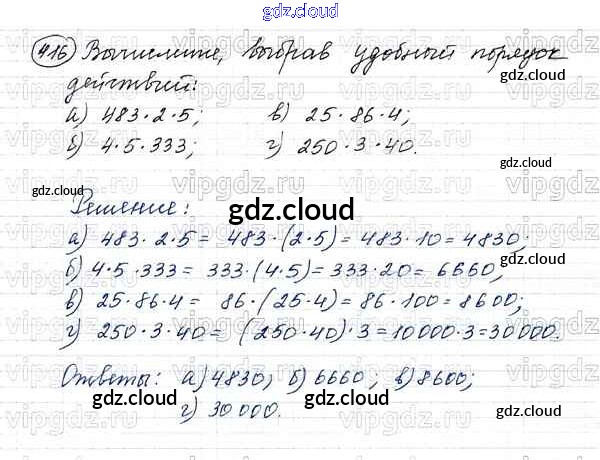 gdz.cloud
416 Вычислите, выбрав удобный порядок
gdz.cloud
действий:
а) 483·2·5; в) 25·86·4;
б) 4·5·333; г) 250·3·40.
gdz.cloud
gdz.cloud
Решение:
gdz.cloud
а) 483·2·5 = 483·(2·5) = 483·10 = 4830;
б) 4·5·333 = 333·(4·5) = 333·20 = 6660;
в) 25·86·4 = 86·(25·4) = 86·100 = 8600;
г) 250·3·40 = (250·40)·3 = 10000·3 = 30000.
Ответы: а) 4830; б) 6660; в) 8600;
г) 30000.
gdz.cloud
gdz.cloud
gdz.cloud